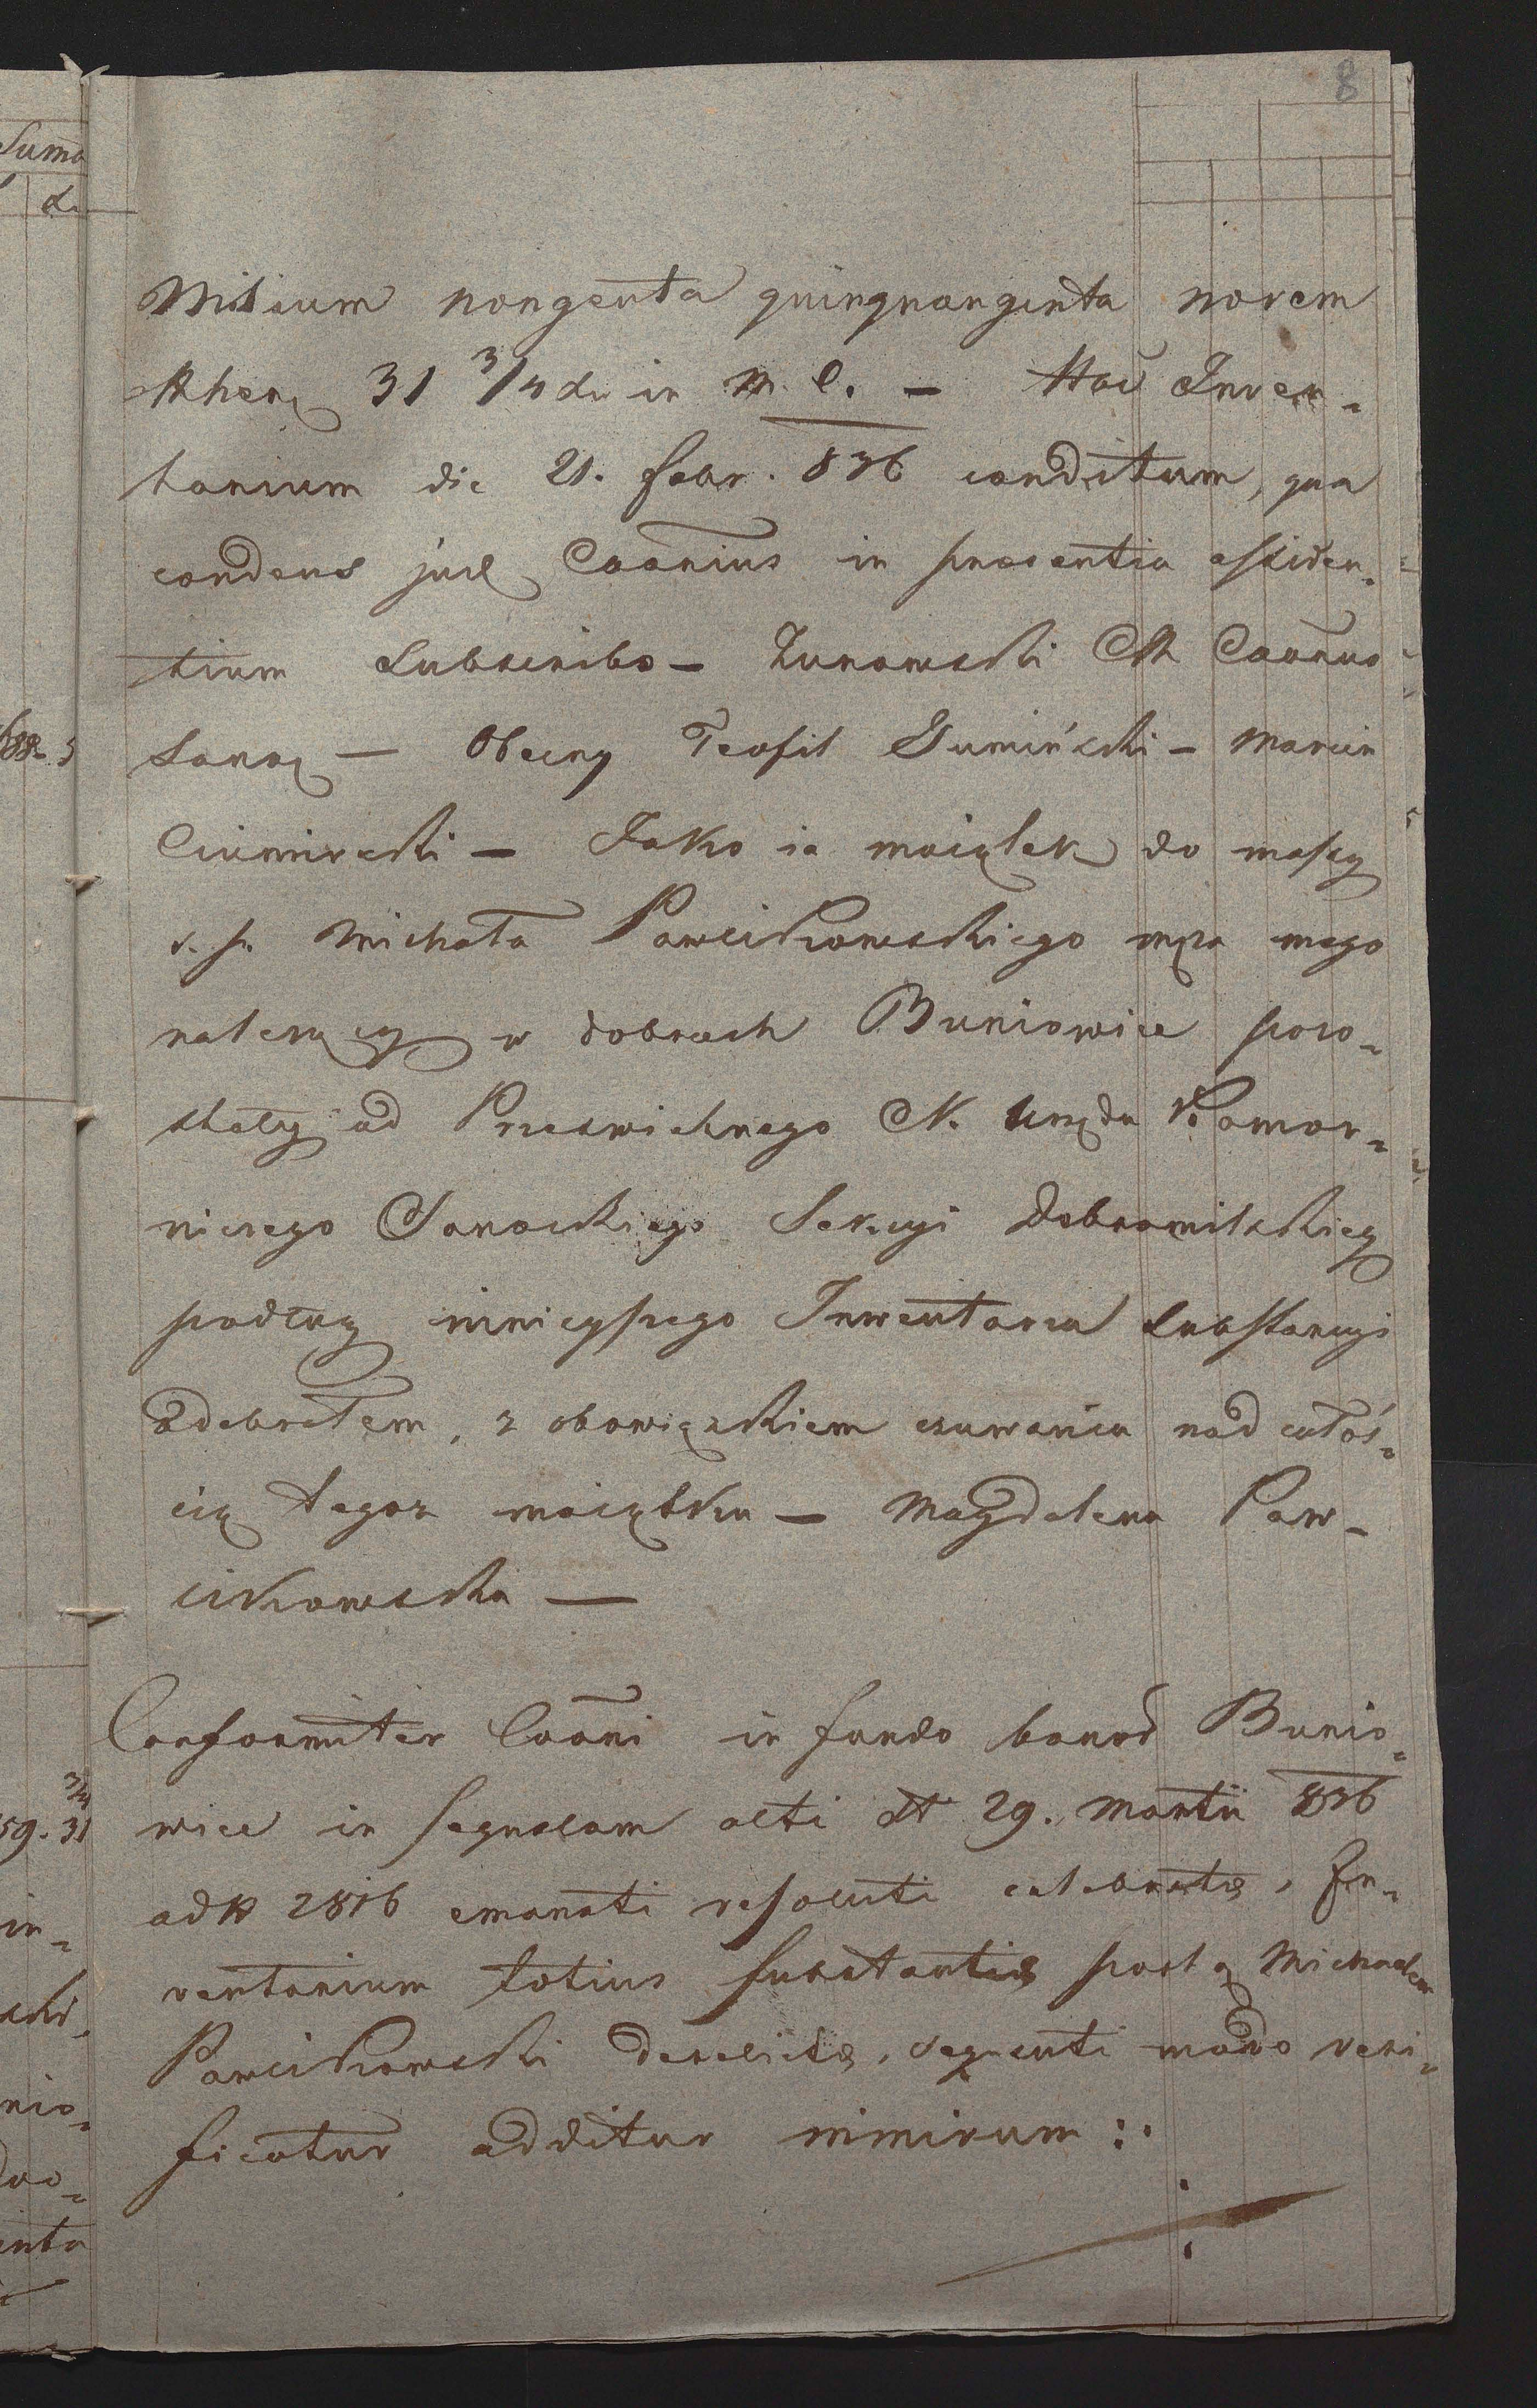 8
Suma
dr
Milium nongenta quinquanginta novem
Rhen 31 3/4 dr in M. C. – Hoc Inven-
tarium die 21. febr. 836 conditum, qua
condens jud Caanius in presentia assiden-
tium Subscribo – Zurowski CR Caanus
Sanoc – Obecny Teofil Gumiński – Marcin
Ciemirski – Jako ia maiątek do massy
s. p. Michała Pawlikowskiego męża mego
należący w dobrach Buniowice pozo-
stały od Prześwietnego C. K. Urzędu Komor-
niczego Sanockiego Sekcyi Dobromilskiey
podług ninieyszego Inwentarza Substancyi
odebrałem, z obowiązkiem czuwania nad całoś-
cią tegoż maiątku – Magdalena Paw-
likowska –
Conformiter Caani in fundo bonor Bunio-
wice in sequelam alti dt 29. Martii 836
ad N 2816 emanati resoluti celebrata, In-
ventarium totius substantia post q Michaelem
Pawlikowski derelicta, sequenti modo veri-
ficatur additur nimirum :
59. 31
3/4
in-
nio-
enta